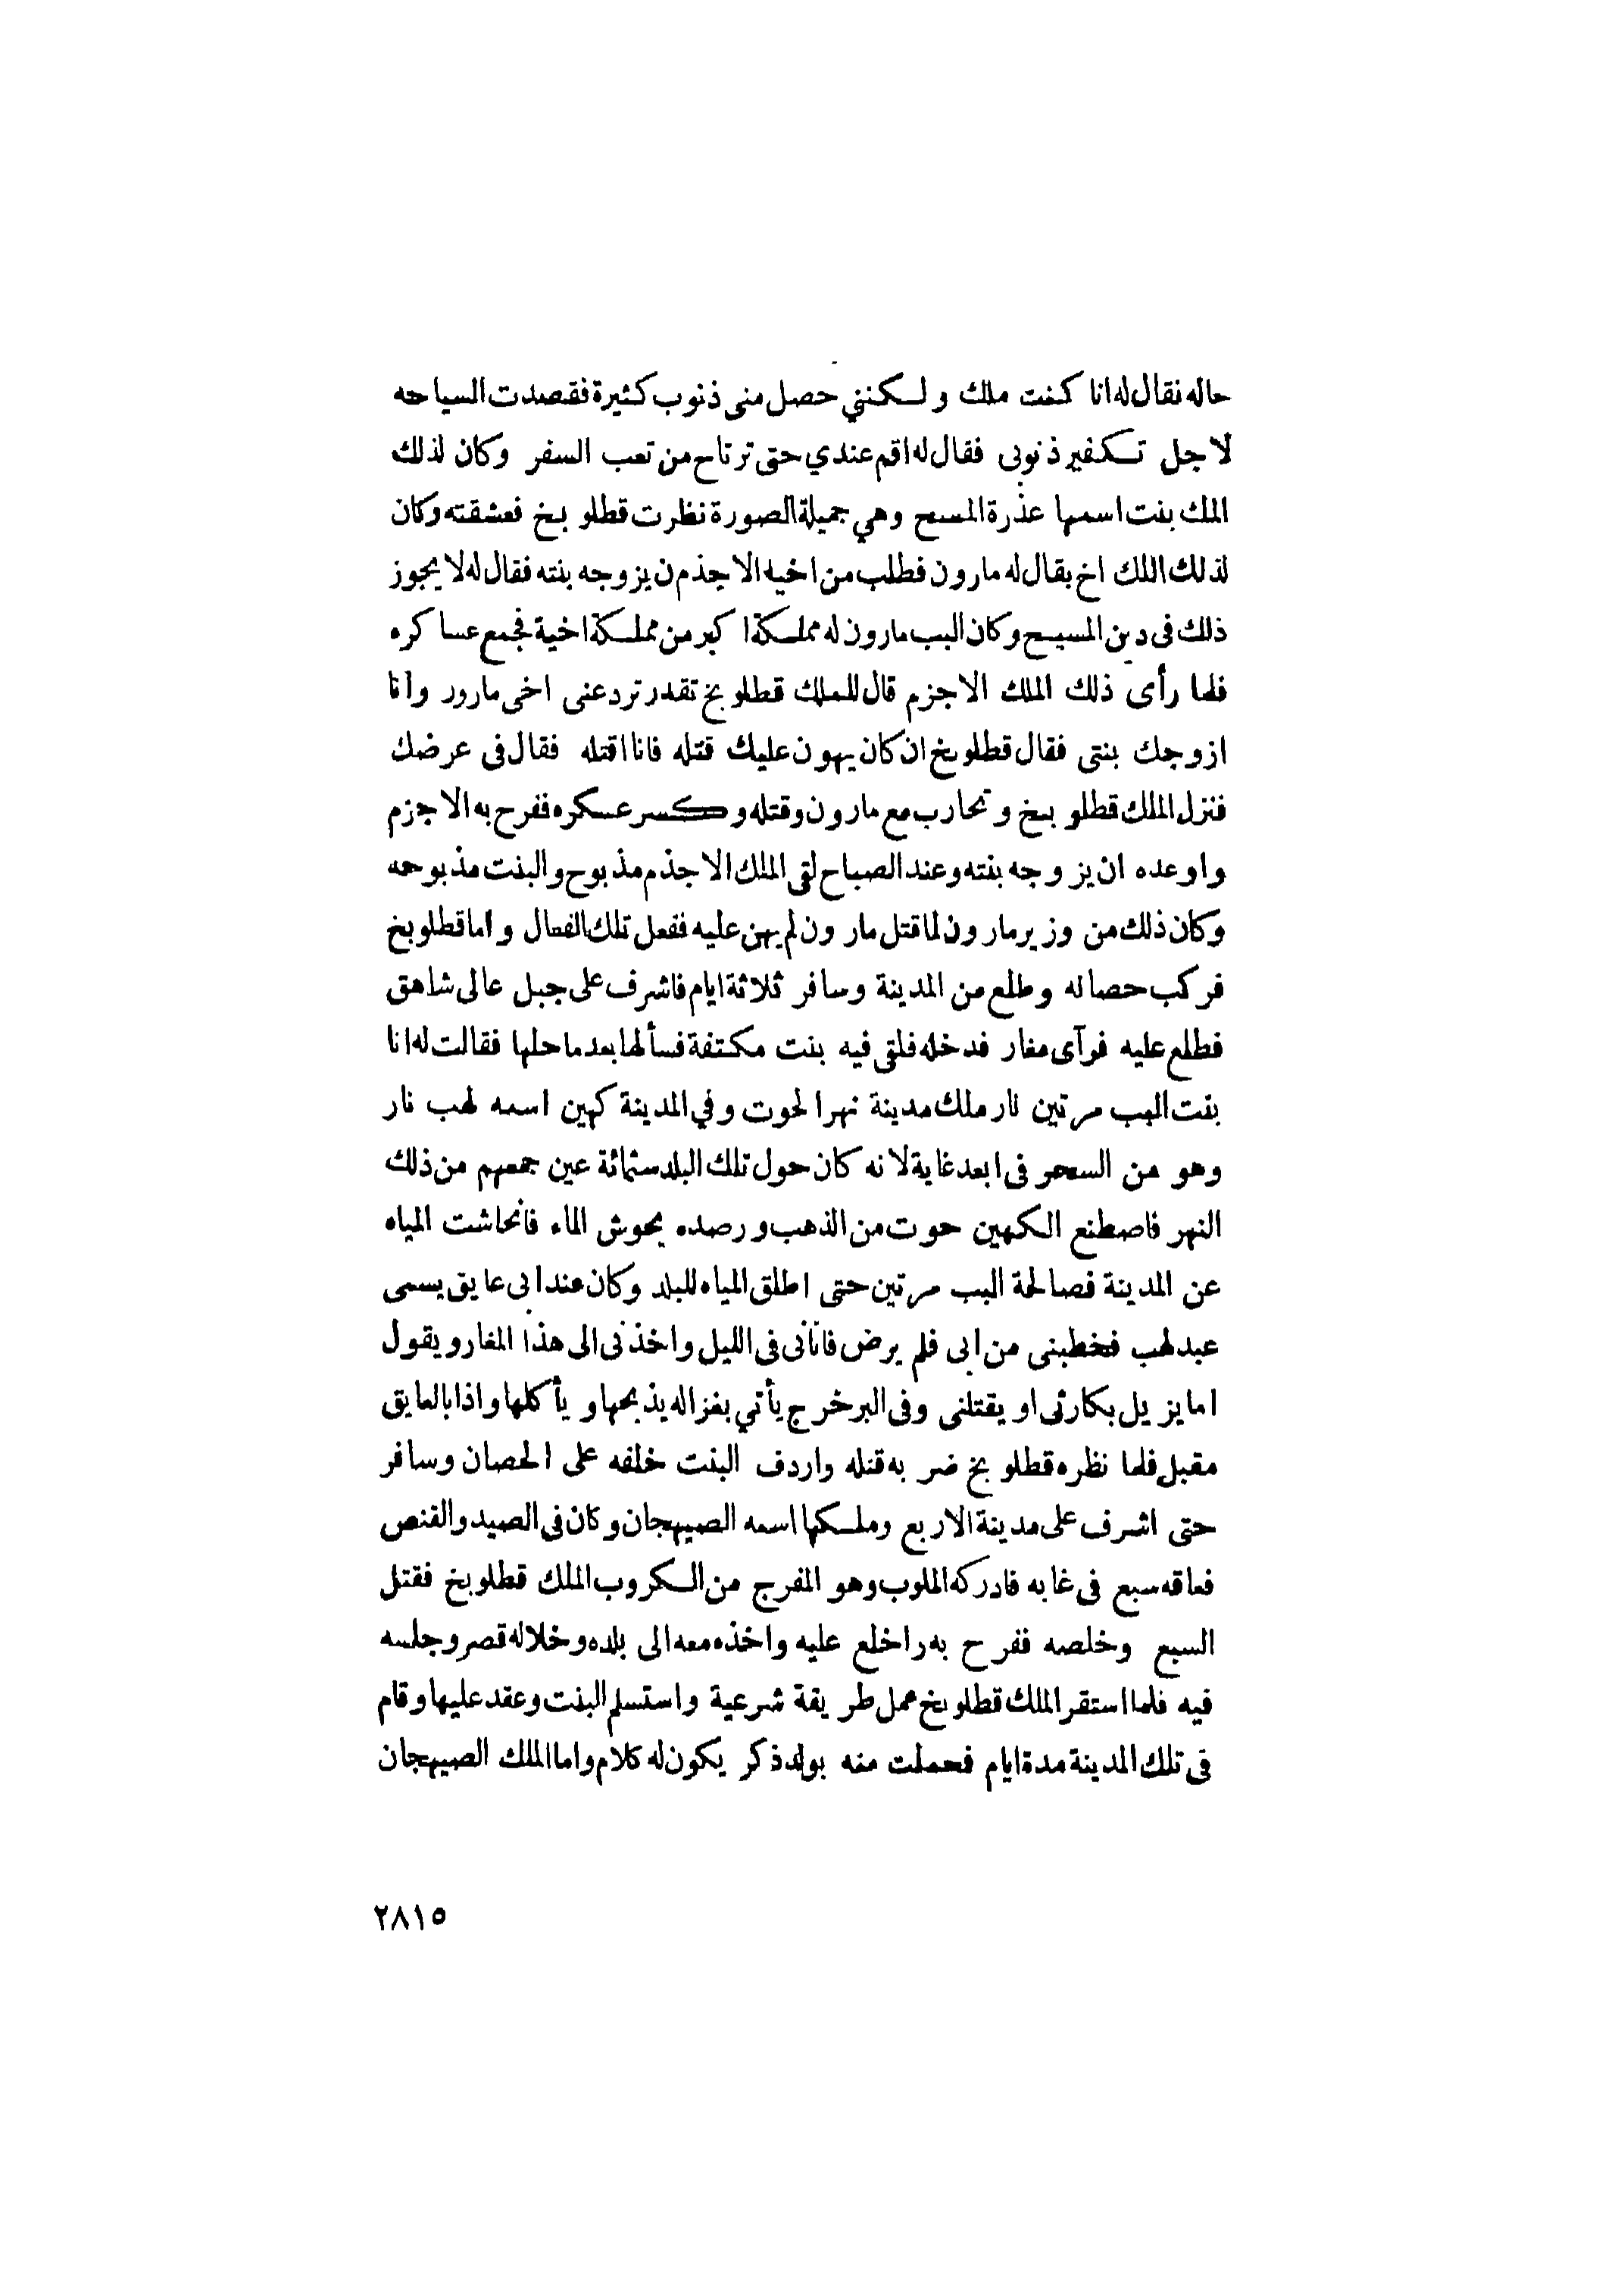 حاله فقال له انا كنت ملك ولكنني حصل منى ذنوب كثيرة فقصدت السياحه
لاجل تكفير ذنوبى فقال له اقم عندي حتى ترتاح من تعب السفر وكان لذلك
الملك بنت اسمها عذرة المسيح وهي جميلة الصورة نظرت قطلو بخ فعشقته وكان
لذلك الملك اخ يقال له مارون فطلب من اخيه الاجذم ن يزوجه بنته فقال له لا يجوز
ذلك فى دين المسيح وكان البب مارون له مملكة اكبر من مملكة اخية فجمع عساكره
فلما رأى ذلك الملك الاجزم قال للملك قطلو بخ تقدر ترد عنى اخى مارور وانا
ازوجك بنتى فقال قطلوبخ ان كان يهون عليك قتله فانا اقتله فقال فى عرضك
فنزل الملك قطلو بخ وتحارب مع مارون وقتله وكسر عسكره ففرح به الاجزم
واوعده ان يزوجه بنته وعند الصباح لقى الملك الاجذم مذبوح والبنت مذبوحه
وكان ذلك من وزير مارون لما قتل مارون لم يهن عليه ففعل تلك الفعال واما قطلوبخ
فركب حصانه وطلع من المدينة وسافر ثلاثة ايام فاشرف على جبل عالى شاهق
فطلع عليه فرآى مغار فدخله فلقى فيه بنت مكتفة فسألها بعد ما حلها فقالت له انا
بنت البب مرتين نار ملك مدينة نهر الحوت وفي المدينة كهين اسمه لهب نار
وهو من السحر فى ابعد غاية لانه كان حول تلك البلد ستمائة عين جمعهم من ذلك
النهر فاصطنع الكهين حوت من الذهب ورصده يحوش الماء فانحاشت المياه
عن المدينة فصالحة البب مرتين حتى اطلق المياه للبلد وكان عند ابى عايق يسمى
عبد لهب فخطبنى من ابى فلم يرض فاتانى فى الليل واخذنى الى هذا المغار ويقول
اما يزيل بكارتى او يقتلنى وفى البر خرج يأتي بغزاله يذبحها ويأكلها واذا بالعايق
مقبل فلما نظره قطلو بخ ضربه قتله واردف البنت خلفه على الحصان وسافر
حتى اشرف على مدينة الاربع وملكها اسمه الصيهجان وكان فى الصيد والقنص
فعاقه سبع فى غابه فادركه الملوب وهو المفرج من الكروب الملك قطلوبخ فقتل
السبع وخلصه ففرح به راخلع عليه واخذه معه الى بلده وخلا له قصر وجلسه
فيه فلما استقر الملك قطلوبخ عمل طريقة شرعية واستسلم البنت وعقد عليها وقام
فى تلك المدينة مدة ايام فحملت منه بولد ذكر يكون له كلام واما الملك الصيهجان
٢٨١٥